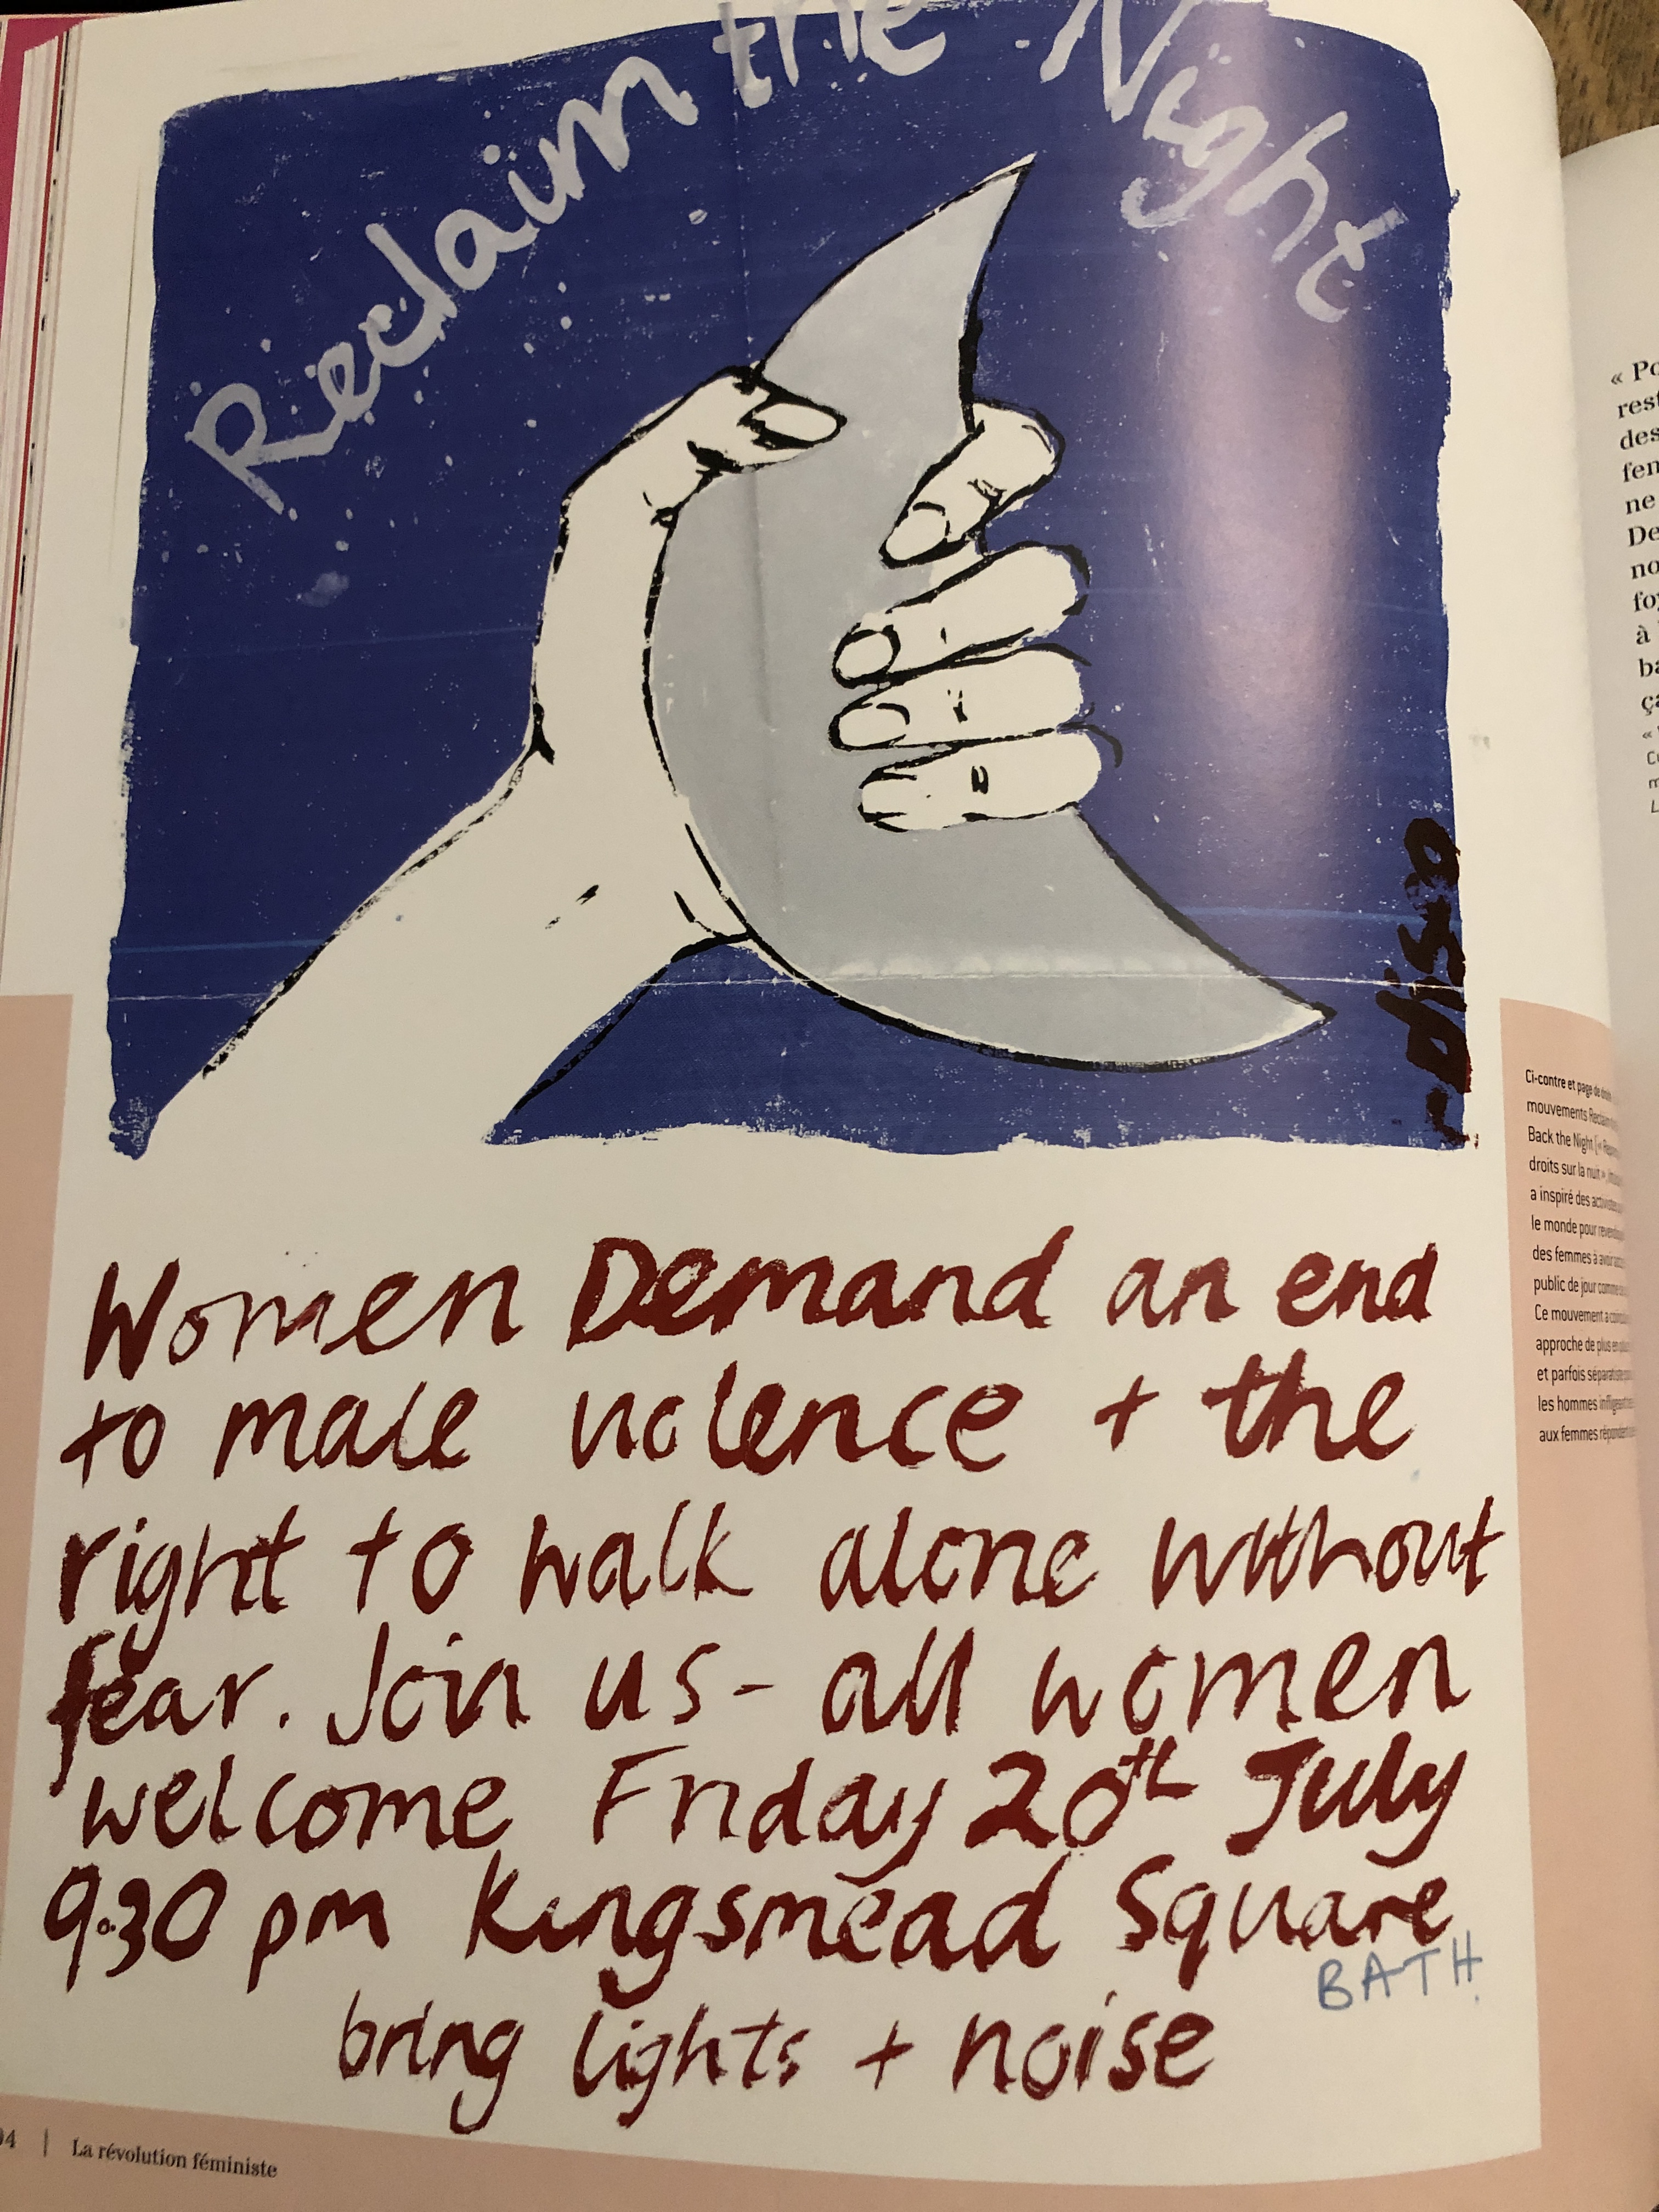 Reclaim the Night
disco
Women Demand an end
to male violence + the
right to walk alone without
fear. Join us - all women
welcome Friday 20th July
9.30 pm Kingsmead Square
BATH.
bring lights + noise
Ci-contre et page de droite
mouvements Reclaim
Back the Night («
droits sur la nuit »
a inspiré des
le monde pour
des femmes à avoir
public de jour comme
Ce mouvement a
approche de plus en
et parfois
les hommes
aux femmes
« Po
rest
des
fem
ne
De
no
à
ba
ça
94 | La révolution féministe